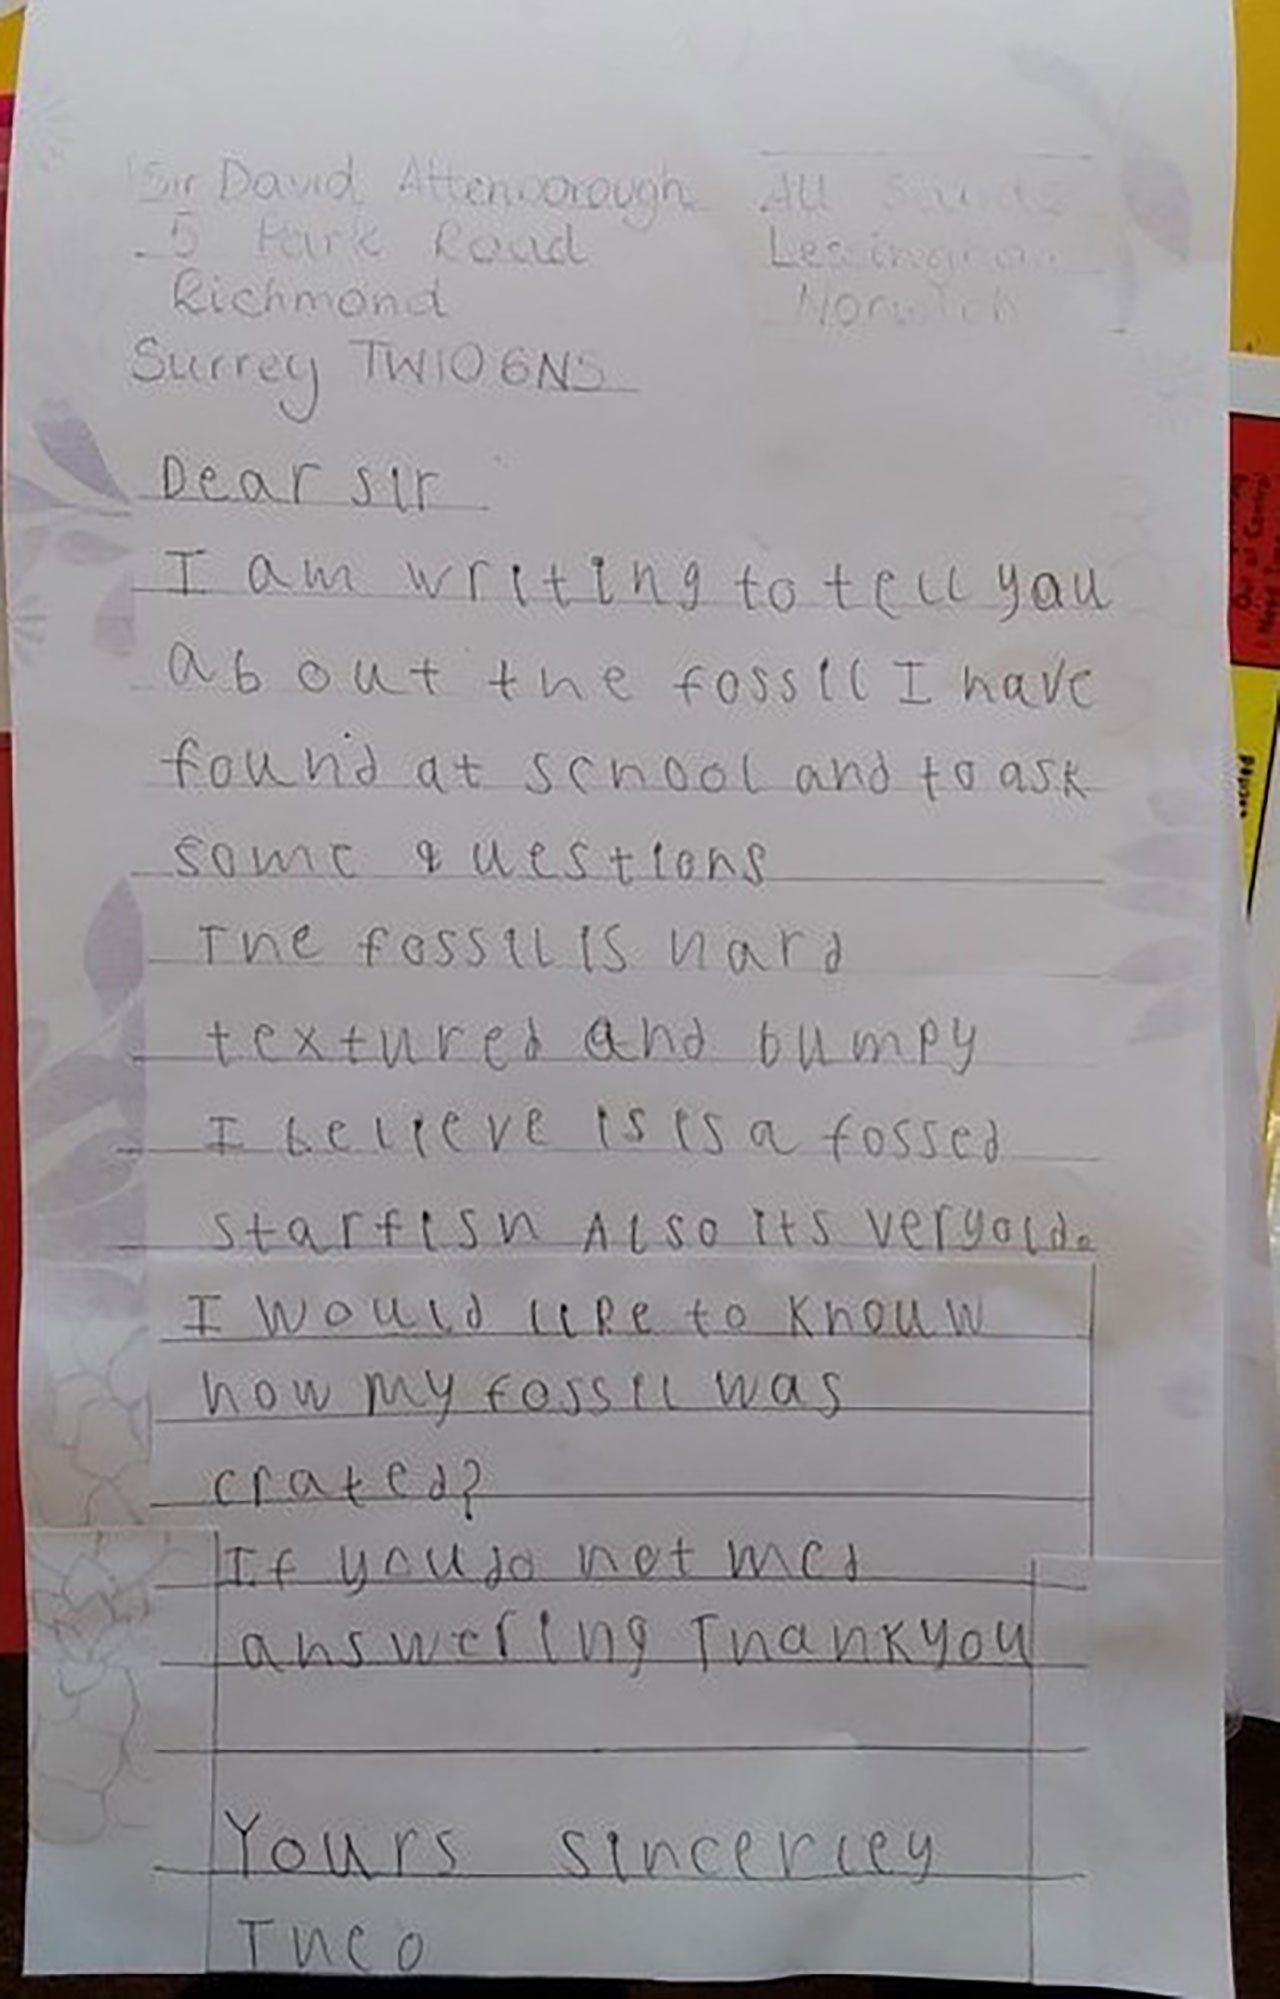 Sir David Attenborough
5 Park Road
Richmond
Surrey TW10 6NS
All Saints
Lessingham
Norwich
Dear sir
I am writing to tell you
about the fossil I have
found at school and to ask
some questions
The fossil is hard
textured and bumpy
I believe is is a fossed
starfish Also its very old.
I would like to knouw
how my fossil was
crated?
If you do not med
answering Thankyou
Yours sincerley
Theo
Out of Control
excited